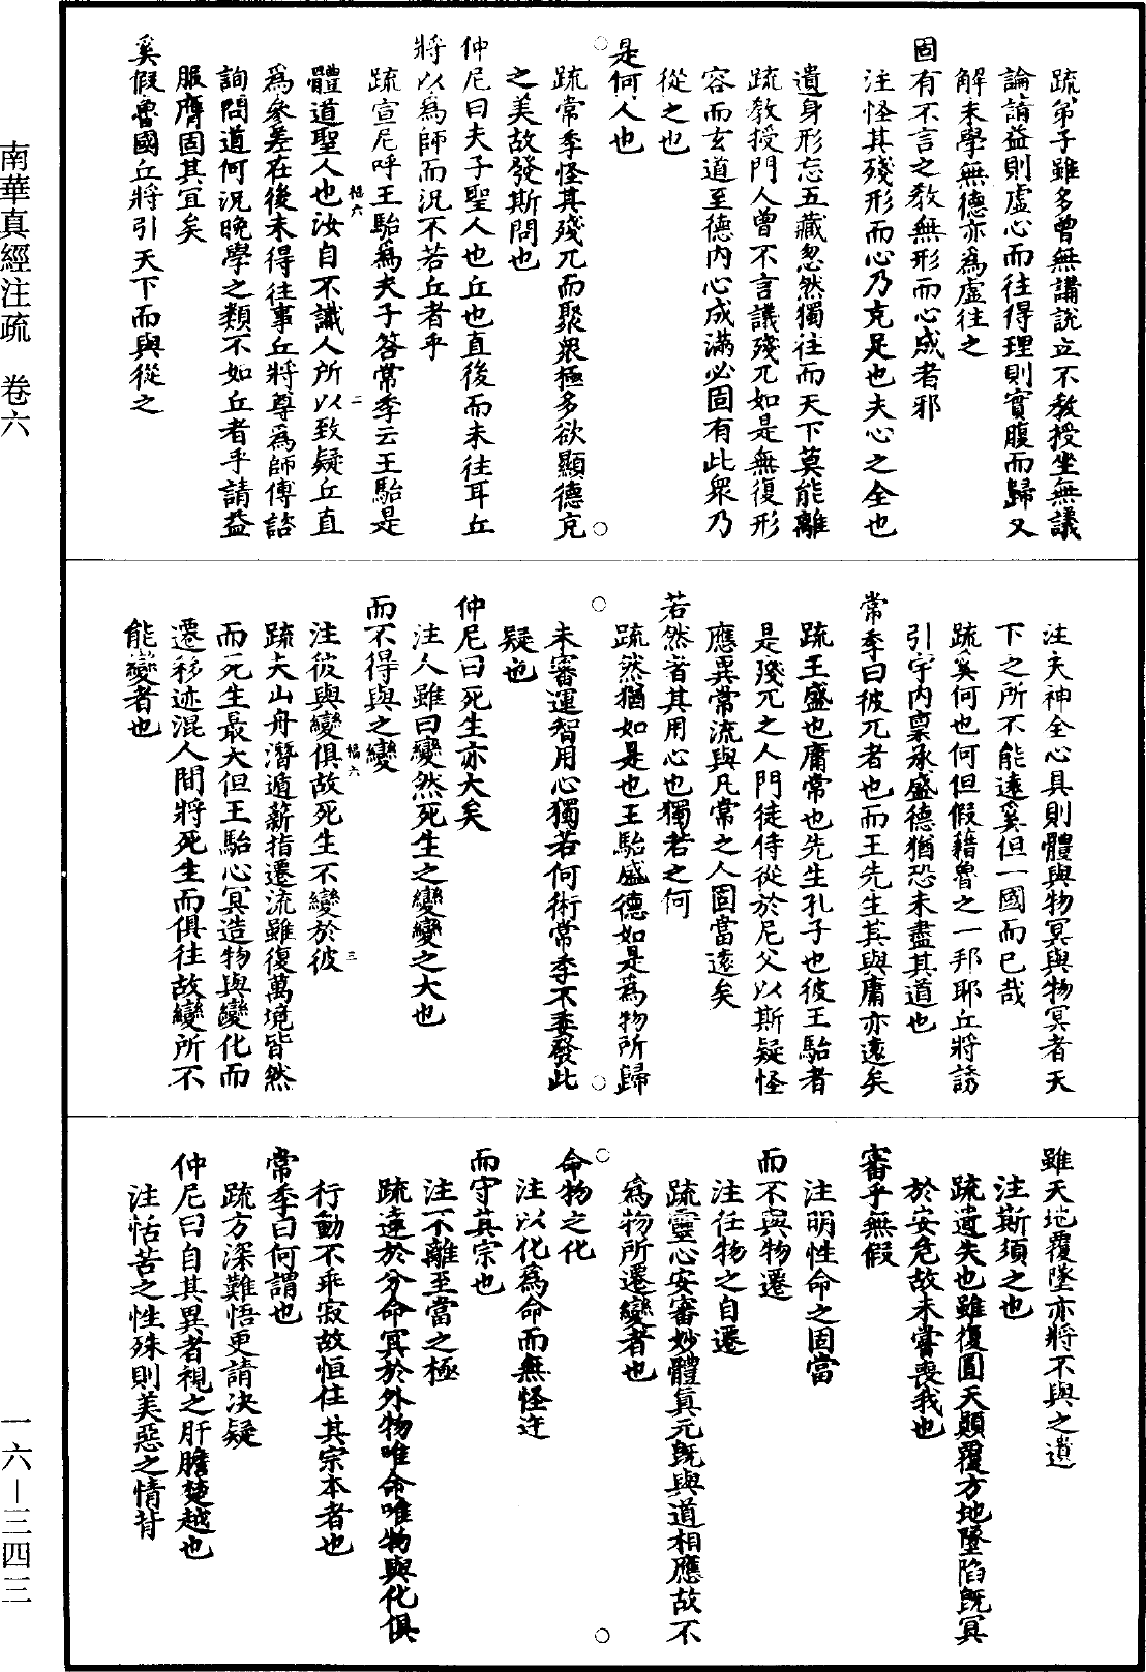 疏弟子雖多曾無講說立不教授坐無議
論請益則虛心而往得理則實腹而歸又
解未學無德亦為虛往之
固有不言之教無形而心成者邪
注怪其殘形而心乃充足也夫心之全也
遺身形忘五藏忽然獨往而天下莫能離
疏教授門人曾不言議殘兀如是無復形
容而玄道至德内心成滿必固有此衆乃
從之也
是何人也
疏常季怪其殘兀而聚衆極多欲顯德充
之美故發斯問也
仲尼曰夫子聖人也丘也直後而未往耳丘
將以為師而況不若丘者乎
疏宣尼呼王駘為夫子答常季云王駘是
體道聖人也汝自不識人所以致疑丘直
為參差在後未得往事丘將尊為師傅諮
詢問道何況晚學之類不如丘者乎請益
服膺固其宜矣
奚假魯國丘將引天下而與從之
注夫神全心具則體與物冥與物冥者天
下之所不能遠奚但一國而已哉
疏奚何也何但假藉魯之一邦耶丘將誘
引宇内禀承盛德猶恐未盡其道也
常季曰彼兀者也而王先生其與庸亦遠矣
疏王盛也庸常也先生孔子也彼王駘者
是殘兀之人門徒侍從於尼父以斯疑怪
應異常流與凡常之人固當遠矣
若然者其用心也獨若之何
疏然猶如是也王駘盛德如是為物所歸
未審運智用心獨若何術常季不委發此
疑也
仲尼曰死生亦大矣
注人雖日變然死生之變變之大也
而不得與之變
注彼與變俱故死生不變於彼
疏夫山舟潛遁薪指遷流雖復萬境皆然
而死生最大但王駘心冥造物與變化而
遷移迹混人間將死生而俱往故變所不
能變者也
雖天地覆墜亦將不與之遺
注斯須之也
疏遺失也雖復圓天顛覆方地墜陷既冥
於安危故未嘗喪我也
審乎無假
注明性命之固當
而不與物遷
注任物之自遷
疏靈心安審妙體真元既與道相應故不
為物所遷變者也
命物之化
注以化為命而無怪迕
而守其宗也
注不離至當之極
疏達於分命冥於外物唯命唯物與化俱
行動不乖寂故恒住其宗本者也
常季曰何謂也
疏方深難悟更請決疑
仲尼曰自其異者視之肝膽楚越也
注恬苦之性殊則美惡之情背
南華真經注疏 卷六
一六—三四三